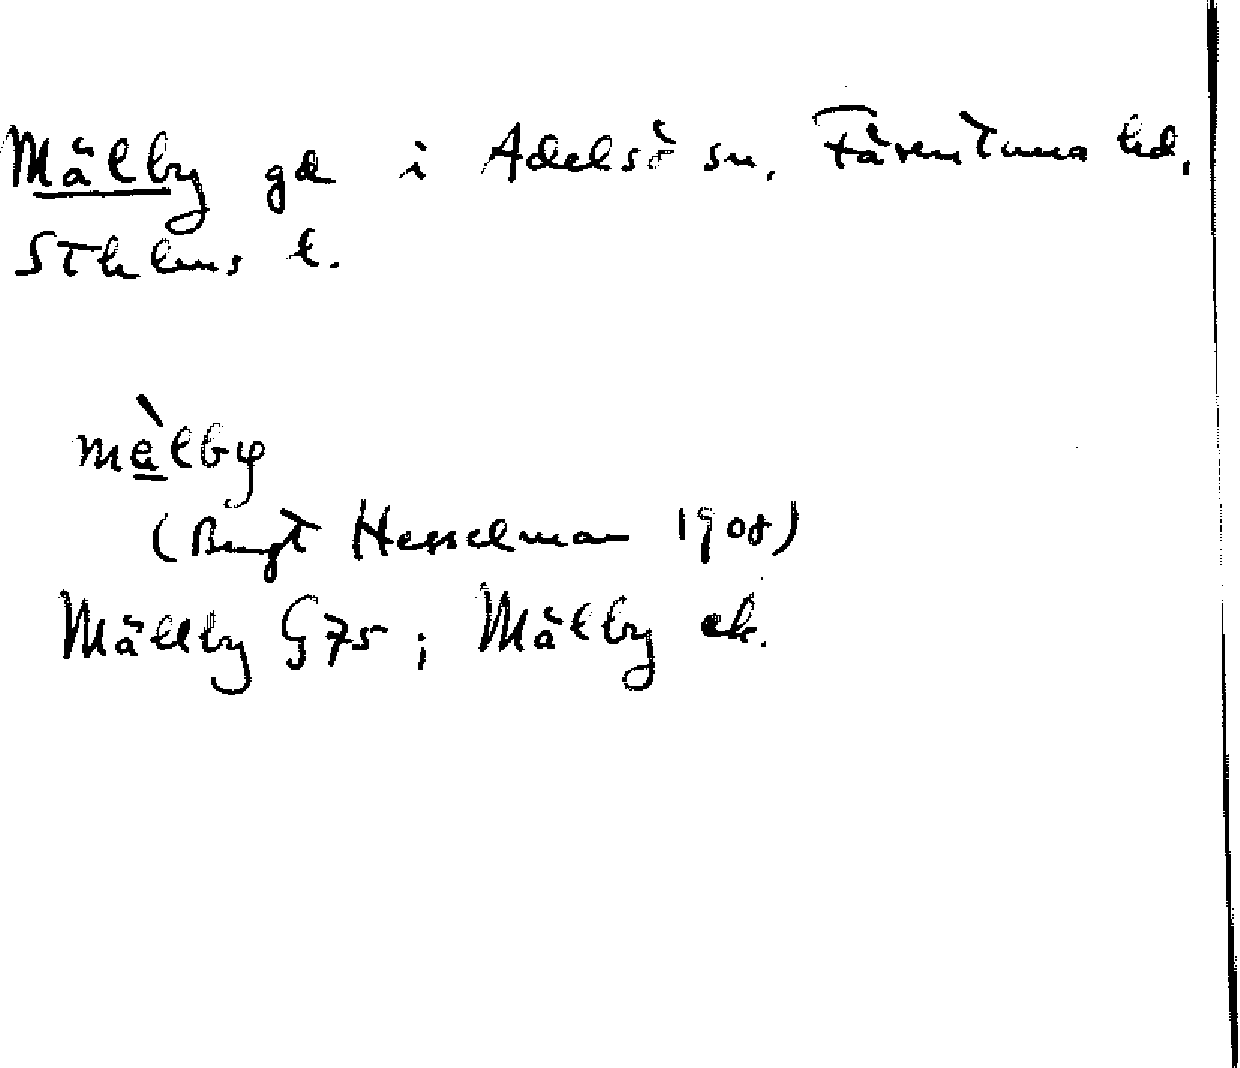 Mälby gd i Adelsö sn, Färentuna hd,
Sthlms l.
mèlby
(Bengt Hesselman 1908)
Mällby G75; Mälby ek.